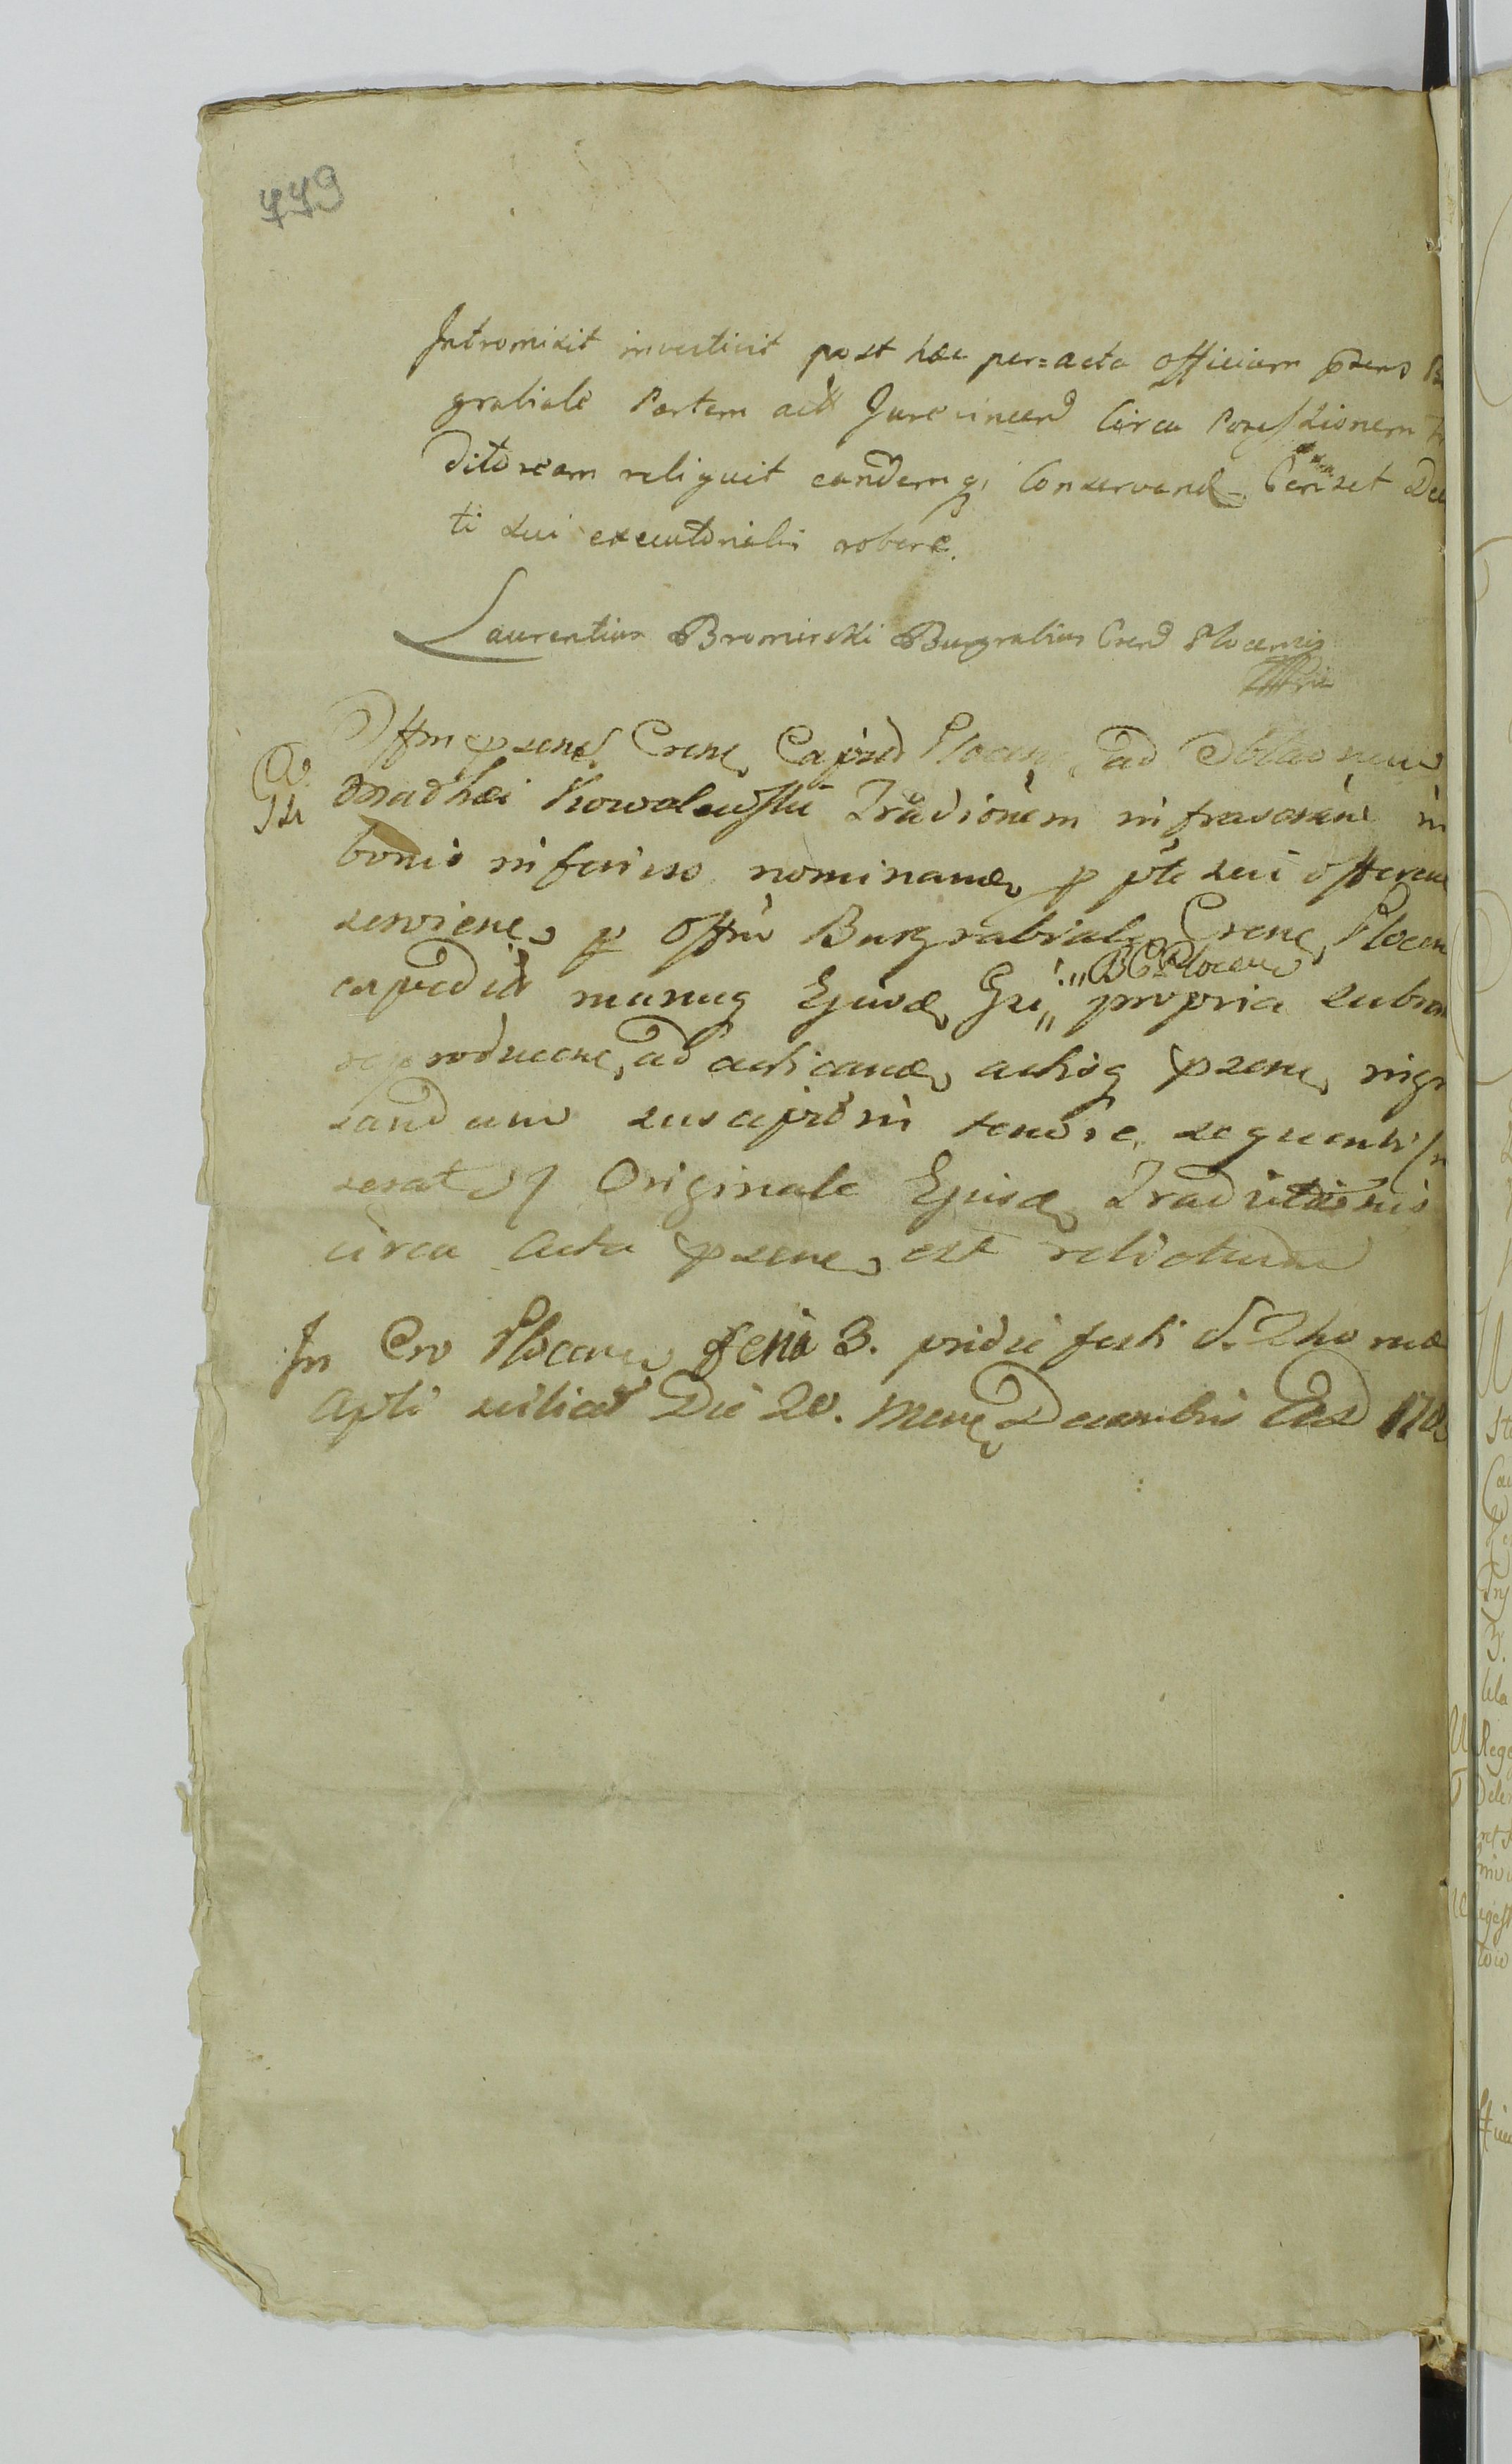 779
Intromisit investivit post hæc per=acta officium pzens
grabiale Partem act Jurevincend Circa Possessionem
ditoream reliquit eandemq Conservand Censet Dec
ti sui executorialis robore.
Laurentius Bromirski Burgrabius Crend Plocensis
Offm pzens Crense Capitd Plocens ad Oblaonem
Mathei Kowalewski Tradionem infrascrine in
bonis inferius nominand p pte sui offeren
serviene p Offm Burgrabiale Crene Plocen
expedit manuq Ejusd Gsi propria subscr
BC Plocens
reproducene, ad acticand actisq pzene ingr
sandum suscepit tenore sequenti
Originale Ejusd Traditionis
circa Acta pzene est relictum
In Cro Plocens feria 3. pridie festi S. Thomæ
Apli scilicet Die 20. Mens Decembris